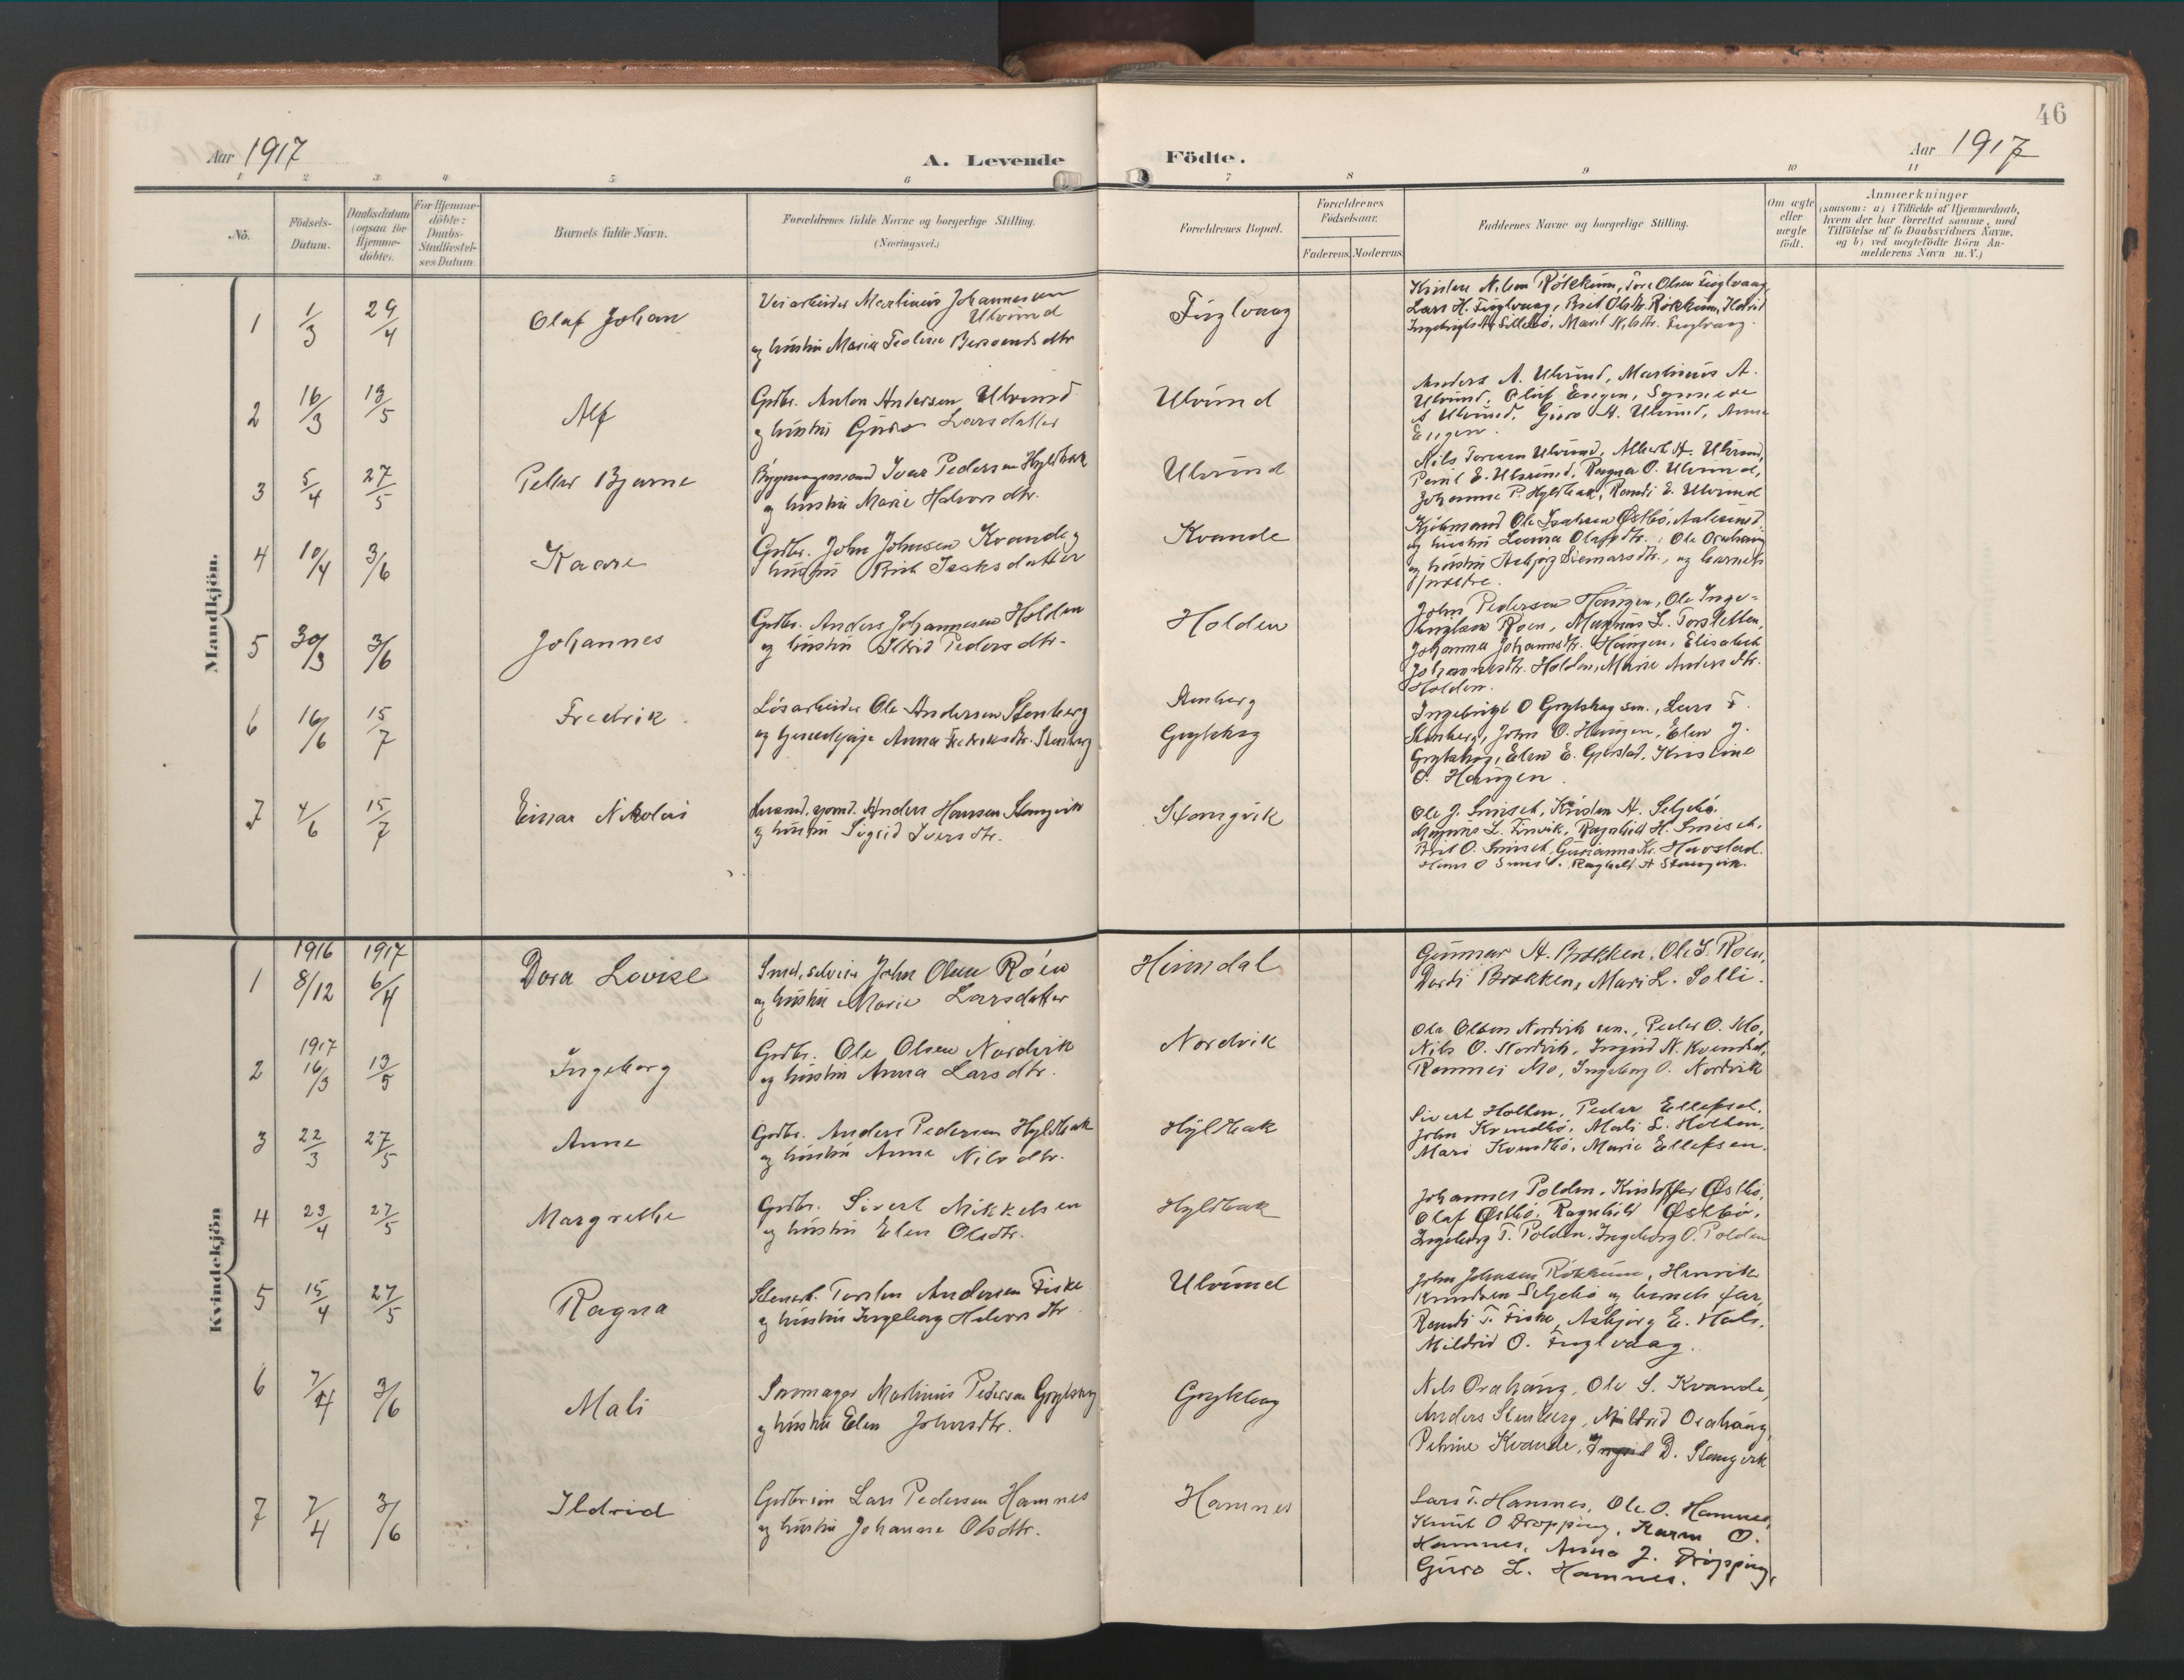 46
Aar 1917
A. Levende
Födte.
Aar 1917
1 2 3 4 5 6 7 8 9 10 11
No.
Födsels-Datum.
Daabsdatum (ogsaa for Hjemme-döbte).
For Hjemme-döbte: Daabs-Stadfæstel-ses Datum.
Barnets fulde Navn.
Forældrenes fulde Navne og borgerlige Stilling.
(Næringsvei.)
Forældrenes Bopæl.
Forældrenes Födselsaar.
Faderens. Moderens.
Faddernes Navne og borgerlige Stilling.
Om ægte eller uægte födt.
Anmærkninger
(saasom: a) i Tilfælde af Hjemmedaab,
hvem der har forrettet samme, med
Tilföielse af to Daabsvidners Navne,
og b) ved uægtefödte Börn An-
melderens Navn m. V.)
Mandkjön.
1 1/3 29/4 Olaf Johan
Veiarbeider Martinus Johannessen
Ulvund
og hustru Maria Bersvendsdtr
Fuglvaag
Kristen Nilsen Rökkum, Tore Olsen Fuglvaag
Lars H. Fuglvaag, Brit Olsdtr. Rökkum, Ildrid
Marit Nilsdtr. Fuglvaag.
2 16/3 13/5 Alf
Grdbr. Anton Andersen Ulvund
og hustru Guro Larsdatter
Ulvund
Anders A. Ulvund, Martinus A.
Ulvund, Oluf Engen, Synneve
A Ulvund, Guro A. Ulvund, Anne
Engen.
3 5/4 27/5 Petter Bjarne
Bygningsmand Ivar Pedersen Hyldbak
og hustru Marie Halvorsdtr.
Ulvund
Nils Ulvund, Albert A. Ulvund,
E. Ulvund, Ragna O. Ulvund,
Johanna P. Hyldbak, Randi E. Ulvund
4 10/4 3/6 Kaare
Grdbr. John Johnsen Kvande og
hustru Brit Isaksdatter
Kvande
Kjöbmand Ole Isaksen Østbö, Aalesund
og hustru Laura Olafsdtr., Ole Orahaug
og hustru Asbjørg Siemarsdtr., og barnets
forældre.
5 30/3 3/6 Johannes
Grdbr. Anders Johannesen Holden
og hustru Ildrid Pedersdtr.
Holden
John Pedersen Haugen, Ole Inge-
brigtsen Roen, Magnus L. Torsletten,
Johanna Johannsdtr. Haugen, Elisabeth
Johannesdtr. Holden, Marie Andersdtr.
Holden.
6 16/6 15/7 Fredrik
Lösarbeider Ole Andersen Stenberg
og Anna Fredriksdtr. Stenberg
Stenberg
Grytskog
Ingebrigt O Grytskog sen., Lars F.
Stenberg, John O. Haugen, Elen J.
Grytskog, Elen E. Gjerstad, Kristine
O. Haugen.
7 4/6 15/7 Einar Nikolai
Anders Hansen Stangvik
og hustru Sigrid Iversdtr.
Stangvik
Ole J. Smisch, Kristen A. Seljebö,
Magnus L. Ragnhild H. Smisch,
Brit O. Smisch, Gurianna Kr. Havstad.
Hans O Ragnhild A Stangvik.
Kvindekjön
1 1916 8/12 1917 6/4 Dora Lovise
Smed, selveier John Olsen Roen
og hustru Marie Larsdatter
Hinndal
Gunnar A. Brøkken, Ole J. Roen,
Dordi Brøkken, Mari L. Solli.
2 1917 16/3 13/5 Ingeborg
Grdbr. Ole Olsen Nordvik
og hustru Anna Larsdtr.
Nordvik
Ole Olsen Nordvik sen., Peder O. Mo,
Nils O. Nordvik, Ingrid N. Kvendbö,
Rannei Mo, Ingeborg O. Nordvik
3 22/3 27/5 Anne
Grdbr. Anders Pedersen Hyldbak
og hustru Anne Nilsdtr.
Hyldbak
Sivert Holten, Peder Ellefsen,
John Kvendbö, Mali S. Holten,
Mari Kvendbö, Marie Ellefsen.
4 23/4 27/5 Margrethe
Grdbr. Sivert Mikkelsen
og hustru Elen Olsdtr.
Hyldbak
Johannes Polden, Kristoffer Østbö,
Olaf Østbö, Ragnhild Østbö,
Ingeborg T. Polden, Ingeborg O. Polden
5 15/4 27/5 Ragna
Torsten Andersen Fiske
og hustru Ingeborg Halvorsdtr
Ulvund
John Johnsen Rökkum, Henrik
Knudsen Seljebö og barnets far,
Randi T. Fiske, Asbjørg E. Hals,
Mildrid O. Fuglvaag.
6 7/4 3/6 Mali
Skomager Martinus Pedersen Grytskog
og hustru Elen Johnsdtr.
Grytskog
Nils Orahaug, Ole S. Kvande,
Anders Stenberg, Mildrid Orahaug,
Petrine Kvande, Ingrid D. Stangvik
7 7/4 3/6 Ildrid
Grdbrsön Lars Pedersen Hamnes
og hustru Johanne Olsdtr.
Hamnes
Lars T. Hamnes, Ole O. Hamnes,
Knut O Dropping, Karen O.
Hamnes, Anna J. Dropping,
Guro L. Hamnes.